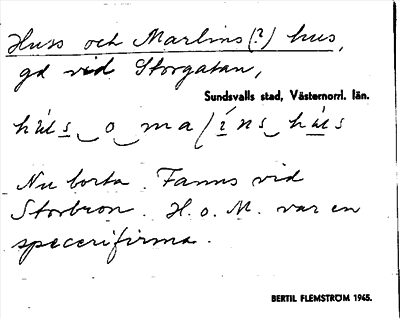 Huss och Marlins(?) hus,
gd vid Storgatan,
Sundsvalls stad, Västernorrl. län.
Nu borta. Fanns vid
Storbron. H. o. M. var en
specerifirma.
BERTIL FLEMSTRÖM 1965.